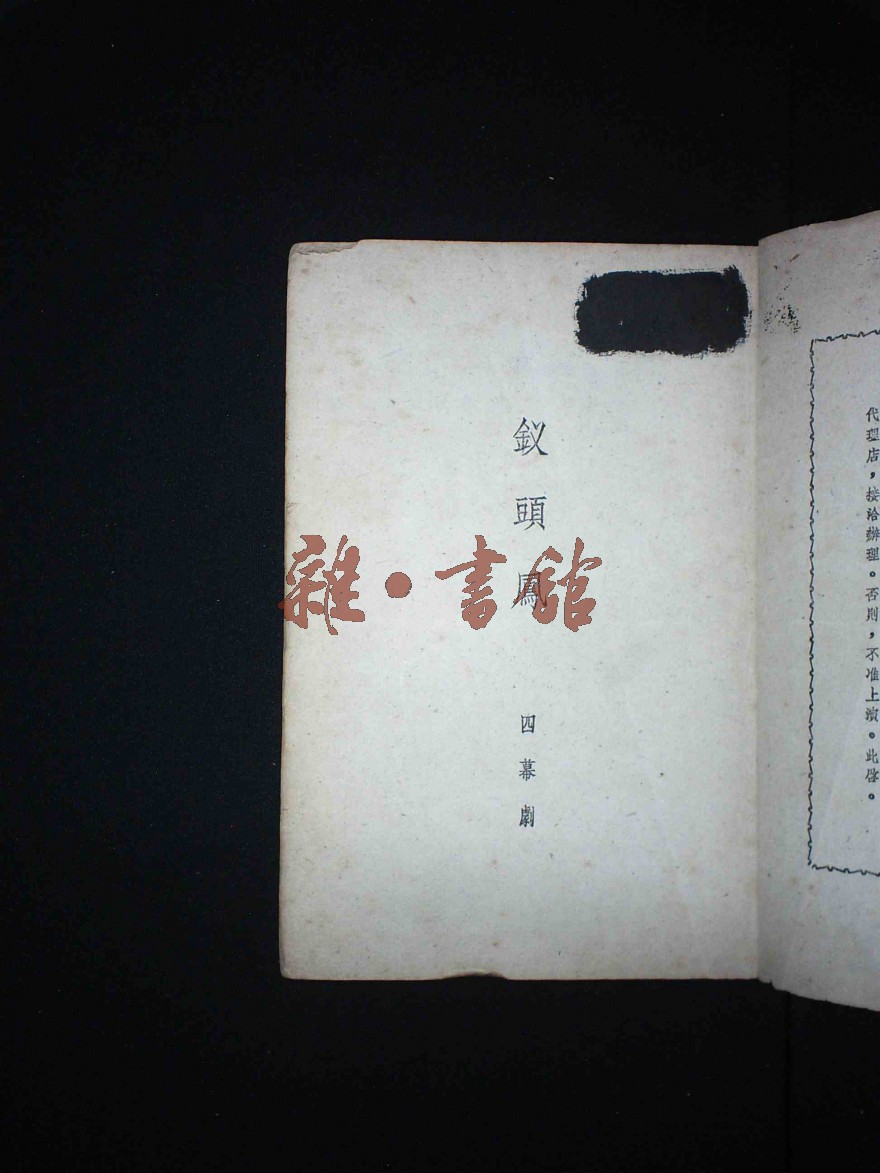 代理店，接洽辦理。否則，不准上演。此啓。
釵頭鳳
四幕劇
雜·書館